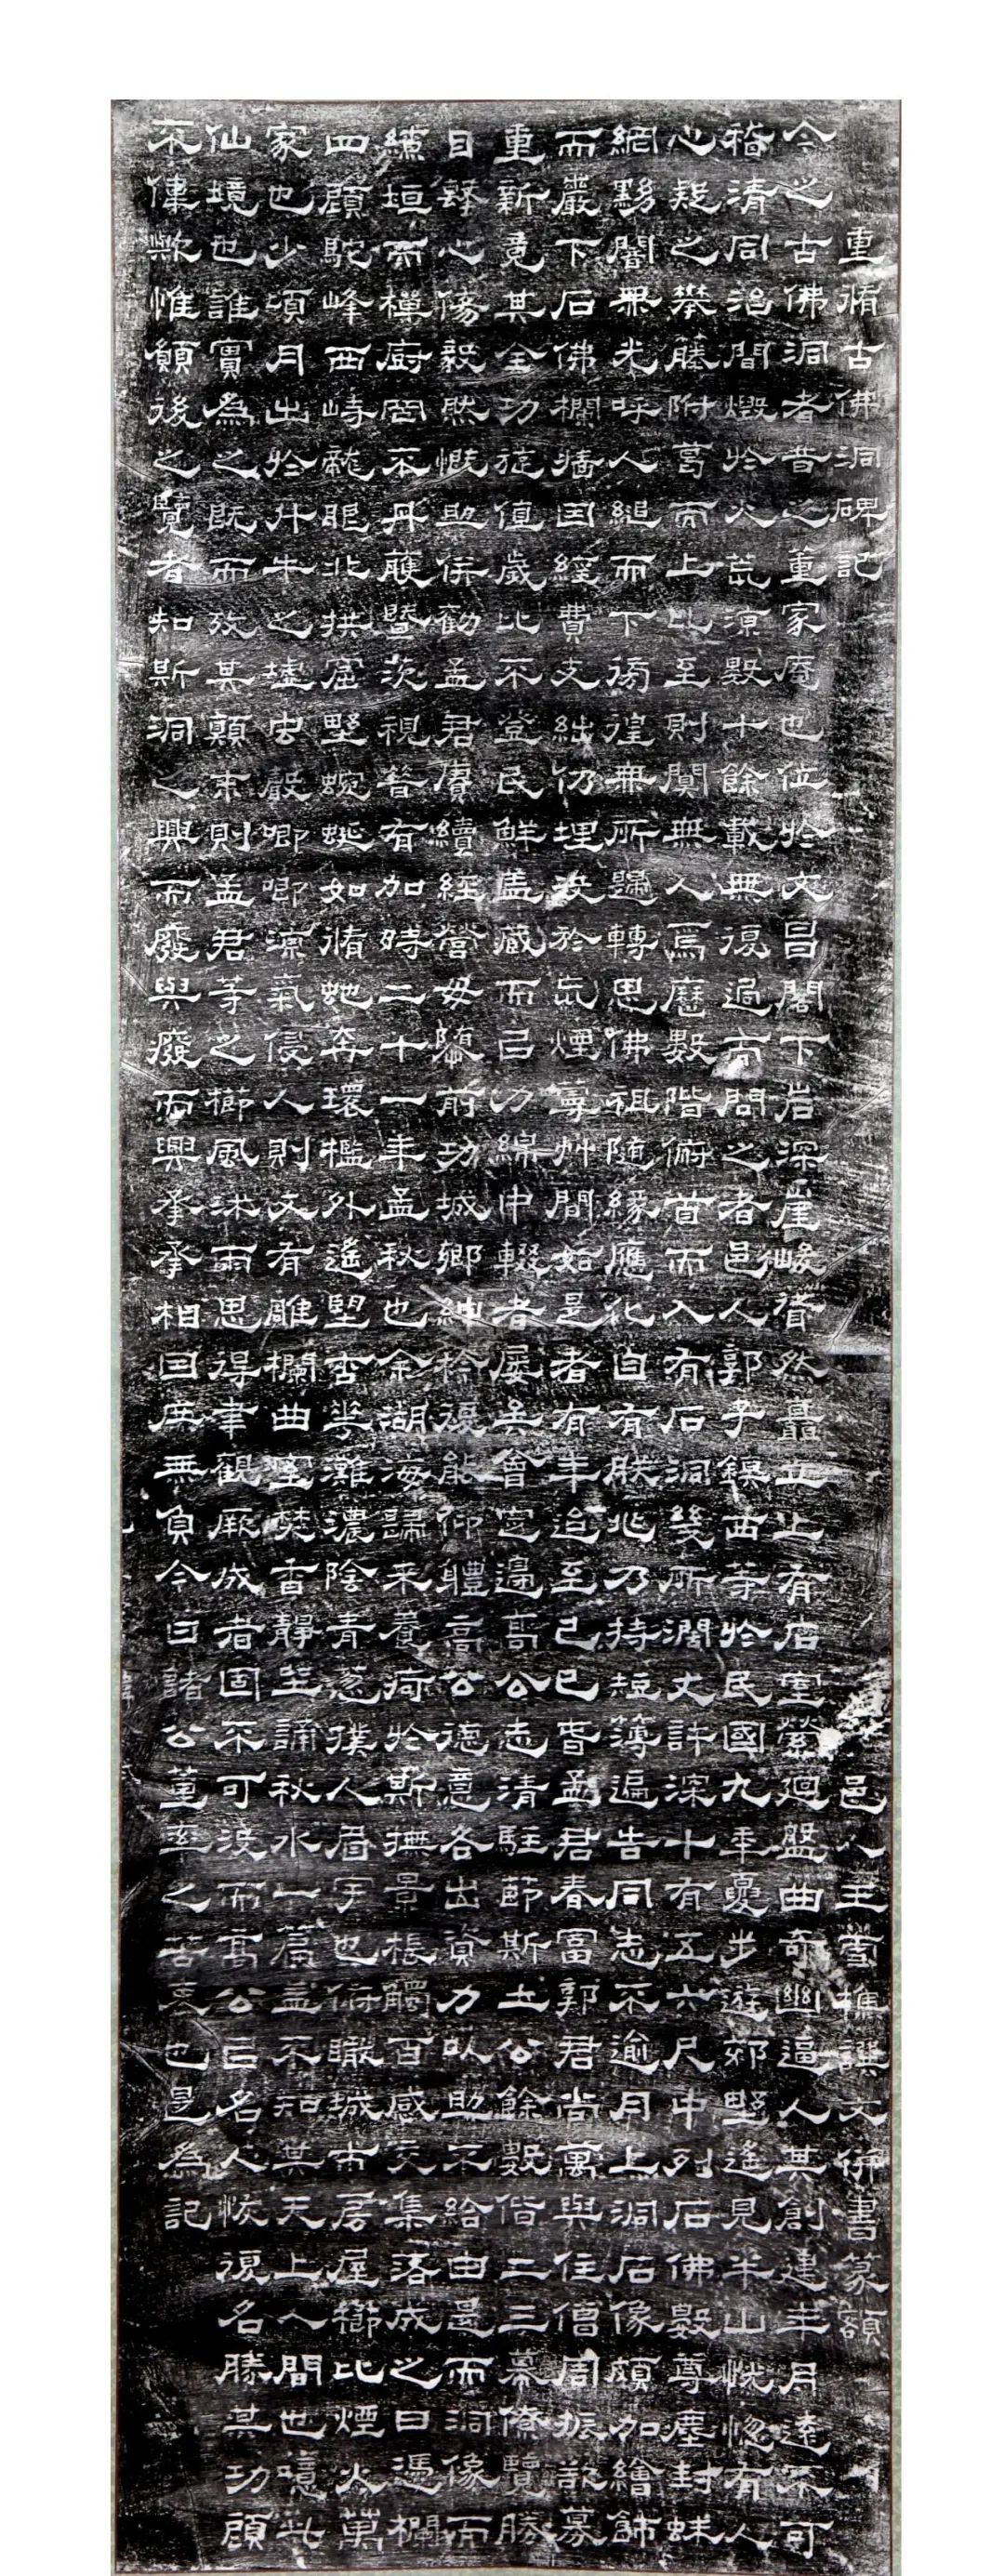 重脩古佛洞碑記 邑人王 撰文併書篆額
今之古佛洞者昔之董家庵也位於文昌閣下岩深崖峻聳然矗立上有石室縈迴盤曲奇幽逼人其創建年月遠不可
稽清同治間燬於火荒涼數十餘載無復過而問之者邑人郭子鎮西等於民國九年憂步遊郊野遙見半山恍惚有人
心疑之攀藤附葛而上比至則闃無人焉歷數階俯首而入有石洞幾所濶丈許深十有五六尺中列石佛數尊塵封蛛
網黟闇無光呼人縋而下徬徨無所歸轉思佛祖随緣應化自有朕兆乃持短簿遍告同志不逾月上洞石像頗加繪飾
而巖下石佛欄墻因經費支絀仍埋沒於荒煙蔓艸間始是者有年迨至己巳春孟君春圃郭君尚萬與住僧周振謀募
重新竟其全功旋值歲比不登民鮮盖藏而己力綿中輟者屢矣會定邊高公志清駐節斯土公餘數偕二三幕僚覽勝
目擊心傷毅然慨助併勸孟君賡續經營毋隳前功城鄉紳衿復能仰體高公德意各出資力以助不給由是而洞像而
繚垣而禪廚罔不丹雘塈茨視昔有加時二十一年孟秋也余湖海歸來養疴於斯撫景悵觸百感交集落成之日憑欄
四顧駝峰西峙龍眼北拱窟野蜿蜒如脩虵奔環檻外遙望杏花灘濃陰青蔥撲人眉宇也俯瞰城市居屋櫛比煙火萬
家也少頃月出於升牛之墟虫聲唧唧涼氣侵人則又有雕欄曲檻焚香靜坐誦秋水一篇盖不知其天上人間也噫此
仙境也誰實為之既而攷其顛末則孟君等之櫛風沐雨思得聿觀厥成者固不可没而高公已名人恢復名勝其功顧
不偉歟惟願後之覽者知斯洞之興而廢與廢而興承承相因庶無負今日諸公董率之苦衷也是為記